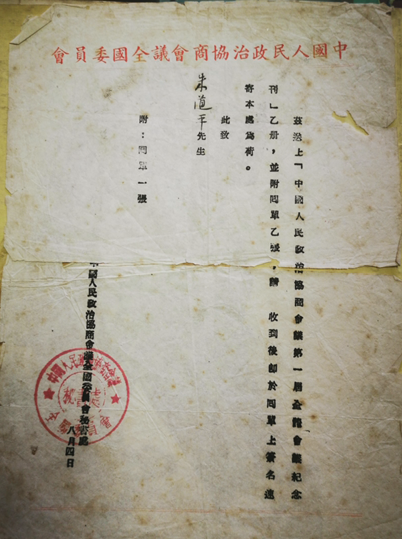 中國人民政治協商會議全國委員會
茲送上「中國人民政治協商會議第一屆全體會議紀念
刊」乙册，並附囘單乙張，請 收到後卽於囘單上簽名逕
寄本處爲荷。
此致
朱道平先生
附：囘單一張
中國人民政治協商會議全國委員會秘書處
八月四日